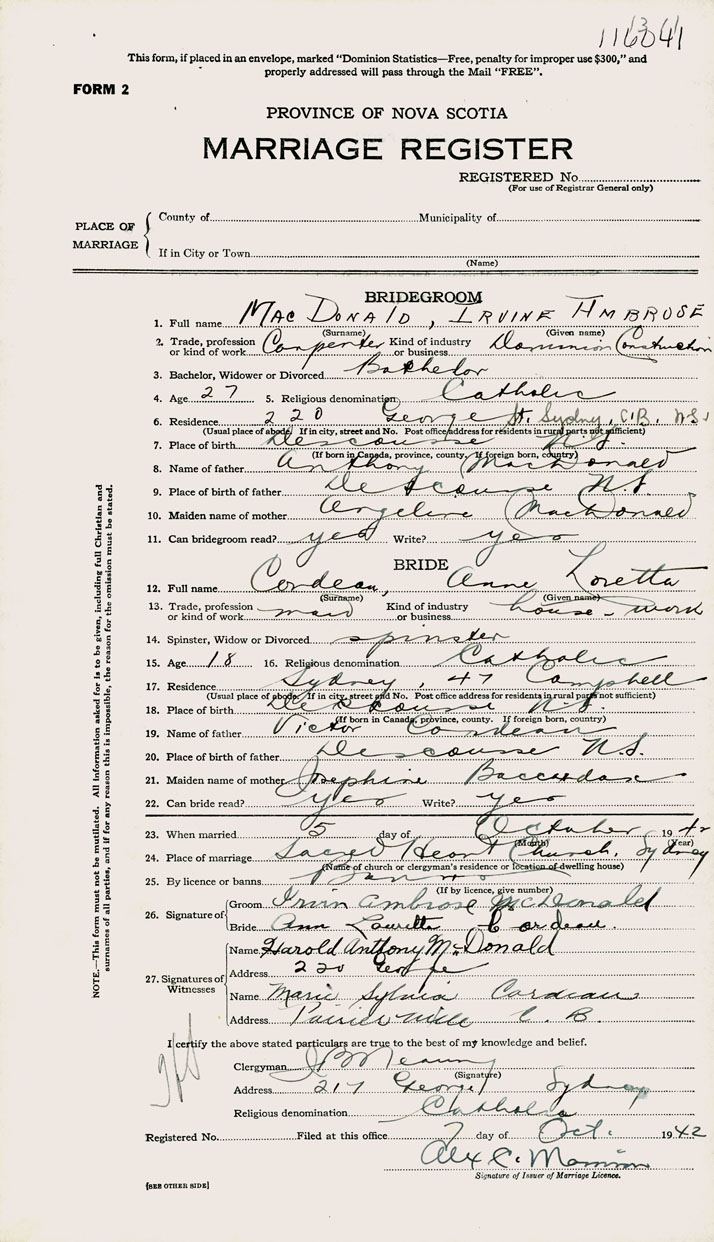 This form, if placed in an envelope, marked "Dominion Statistics—Free, penalty for improper use $300," and
properly addressed will pass through the Mail "FREE".
FORM 2
PROVINCE OF NOVA SCOTIA
MARRIAGE REGISTER
REGISTERED No.
(For use of Registrar General only)
PLACE OF MARRIAGE
County of Municipality of
If in City or Town
(Name)
BRIDEGROOM
1. Full name MacDonald, Irvine Ambrose
(Surname) (Given name)
2. Trade, profession or kind of work Carpenter Kind of industry or business Dominion Construction
3. Bachelor, Widower or Divorced Bachelor
4. Age 27 5. Religious denomination Catholic
6. Residence 220 George St. Sydney, C.B. N.S.
(Usual place of abode. If in city, street and No. Post office address for residents in rural parts not sufficient)
7. Place of birth Descousse N.S.
(If born in Canada, province, county. If foreign born, country)
8. Name of father Anthony MacDonald
9. Place of birth of father Descousse N.S.
10. Maiden name of mother Angeline MacDonald
11. Can bridegroom read? yes Write? yes
BRIDE
12. Full name Cordeau, Anne Loretta
(Surname) (Given name)
13. Trade, profession or kind of work maid Kind of industry or business house-work
14. Spinster, Widow or Divorced spinster
15. Age 18 16. Religious denomination Catholic
17. Residence Sydney, 47 Campbell
(Usual place of abode. If in city, street and No. Post office address for residents in rural parts not sufficient)
18. Place of birth Descousse N.S.
(If born in Canada, province, county. If foreign born, country)
19. Name of father Victor Cordeau
20. Place of birth of father Descousse N.S.
21. Maiden name of mother Josephine
22. Can bride read? yes Write? yes
23. When married 5 day of October 1942
(Month) (Year)
24. Place of marriage Sacred Heart Church, Sydney
(Name of church or clergyman's residence or location of dwelling house)
25. By licence or banns Banns
(If by licence, give number)
26. Signature of
Groom Irvin Ambrose McDonald
Bride Ann Lauretta Cordeau.
27. Signatures of Witnesses
Name Harold Anthony McDonald
Address 220 George
Name Marie Sylvia Cordeau
Address C. B.
I certify the above stated particulars are true to the best of my knowledge and belief.
Clergyman
(Signature)
Address 217 George Sydney
Religious denomination Catholic
Registered No. Filed at this office 7 day of Oct. 1942
Alex C.
Signature of Issuer of Marriage Licence.
[SEE OTHER SIDE]
NOTE.—This form must not be mutilated. All Information asked for is to be given, including full Christian and
surnames of all parties, and if for any reason this is impossible, the reason for the omission must be stated.